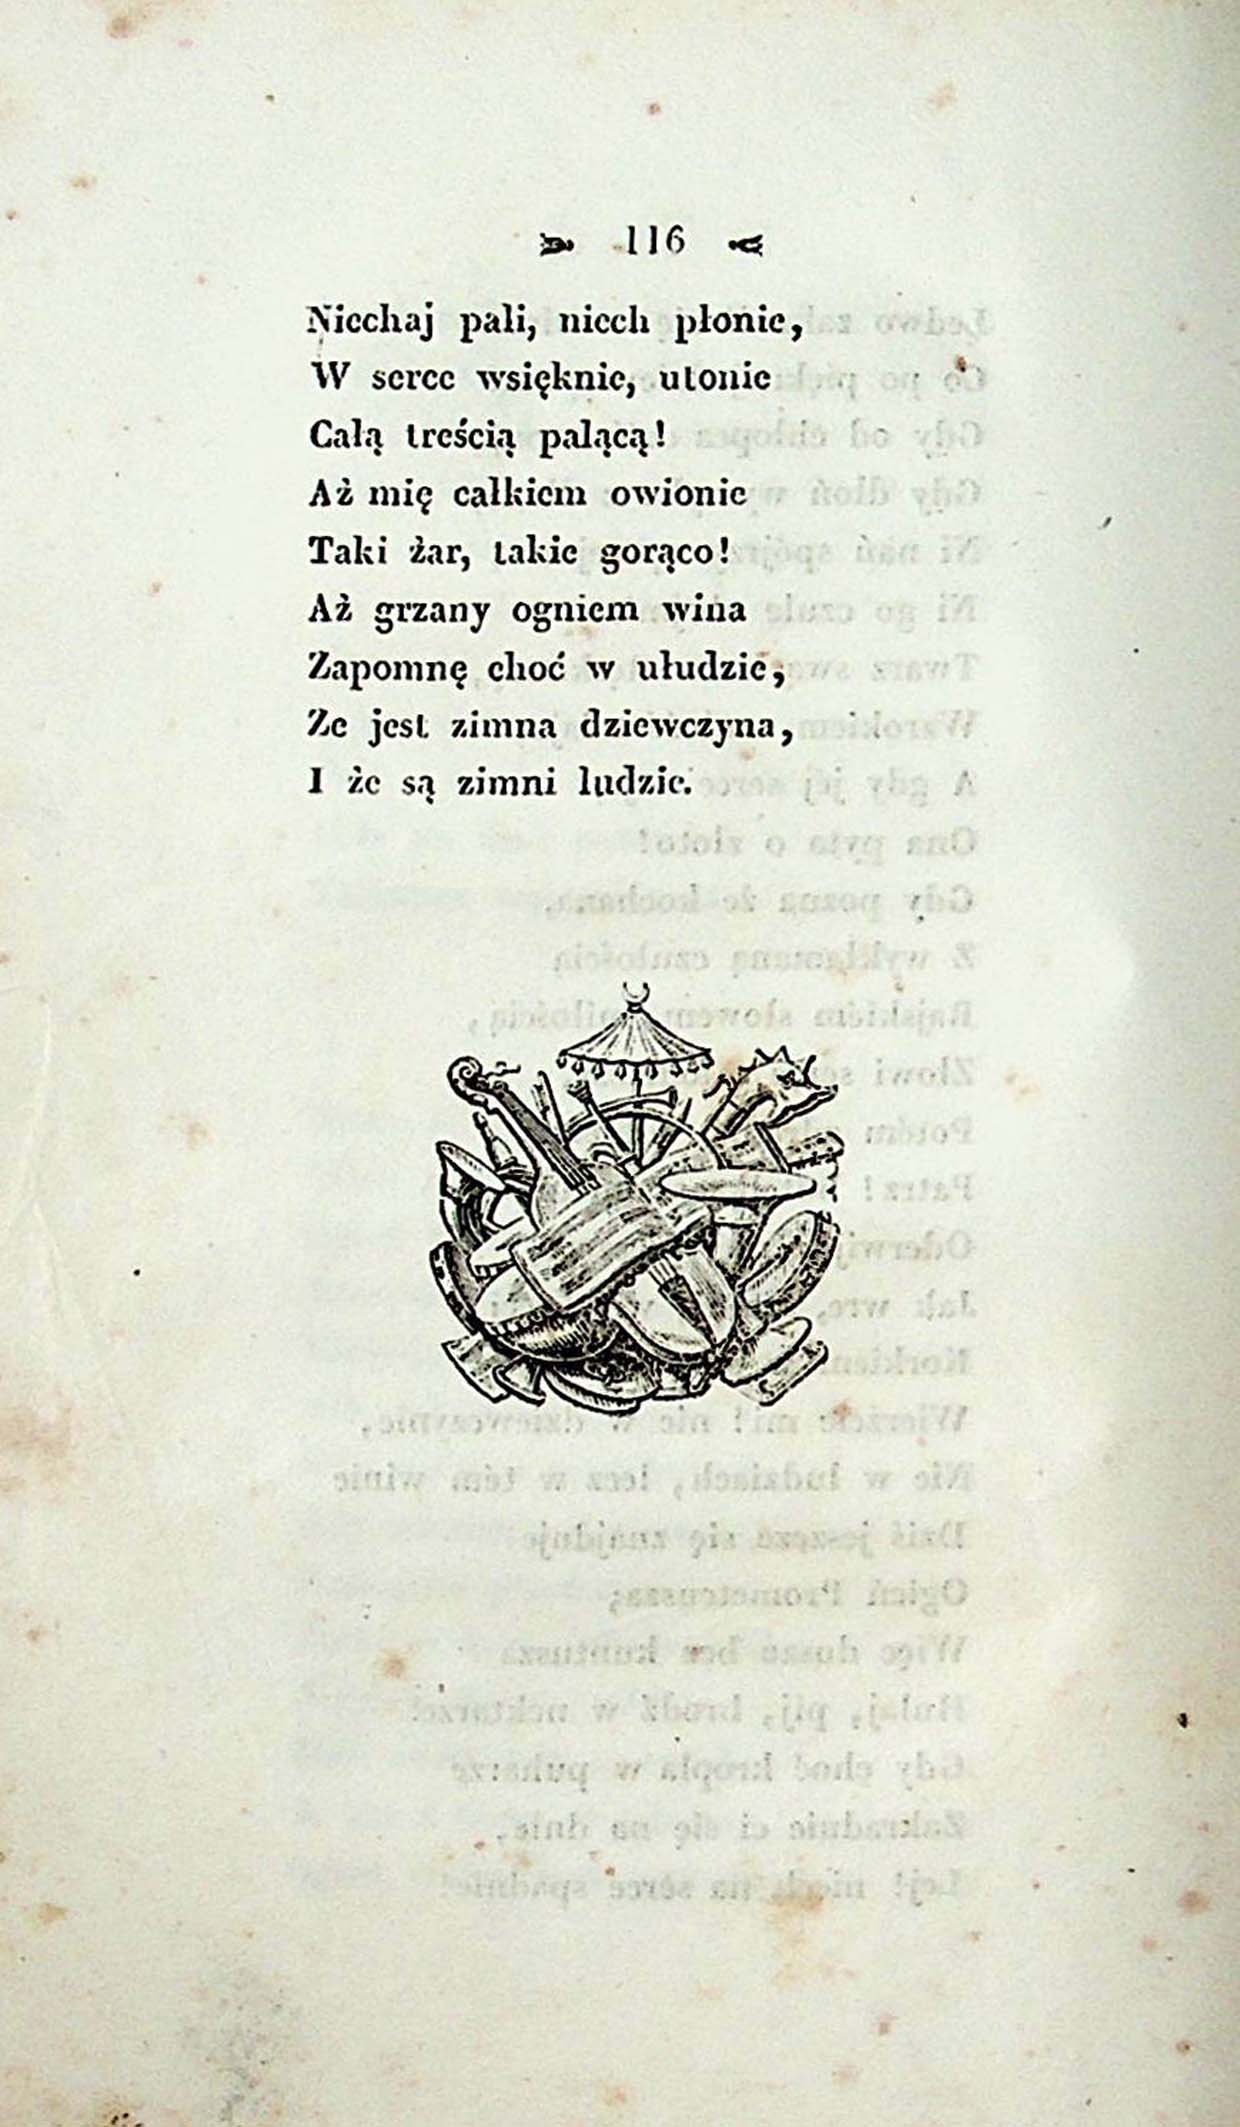 116
Niechaj pali, niech płonie,
W serce wsięknie, utonie
Całą treścią palącą!
Aż mię całkiem owionie
Taki żar, takie gorąco!
Aż grzany ogniem wina
Zapomnę choć w ułudzie,
Że jest zimna dziewczyna,
I że są zimni ludzie.